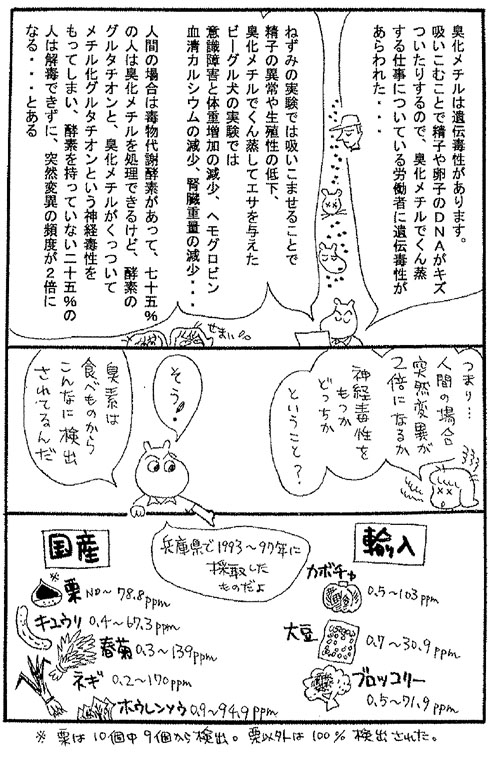 臭化メチルは遺伝毒性があります。
吸いこむことで精子や卵子のDNAがキズ
ついたりするので、臭化メチルでくん蒸
する仕事についている労働者に遺伝毒性が
あらわれた・・・
ねずみの実験では吸いこませることで
精子の異常や生殖性の低下、
臭化メチルでくん蒸してエサを与えた
ビーグル犬の実験では
意識障害と体重増加の減少、ヘモグロビン
血清カルシウムの減少、腎臓重量の減少・・・
人間の場合は毒物代謝酵素があって、七十五%
の人は臭化メチルを処理できるけど、酵素の
グルタチオンと、臭化メチルがくっついて
メチル化グルタチオンという神経毒性を
もってしまい、酵素を持っていない二十五%の
人は解毒できずに、突然変異の頻度が2倍に
なる・・・とある
せまい。。
つまり…
人間の場合
突然変異が
2倍になるか
神経毒性を
もつか
どっちか
ということ?
そう!
臭素は
食べものから
こんなに検出
されてるんだ
兵庫県で1993〜97年に
採取した
ものだよ
輸入
カボチャ
0.5〜103ppm
大豆
0.7〜30.9ppm
ブロッコリー
0.5〜71.9ppm
国産
※
栗 ND〜78.8ppm
キュウリ 0.4〜67.3ppm
春菊 0.3〜139ppm
ネギ 0.2〜170ppm
ホウレンソウ 0.9〜94.9ppm
※ 栗は10個中9個から検出。栗以外は100%検出された。